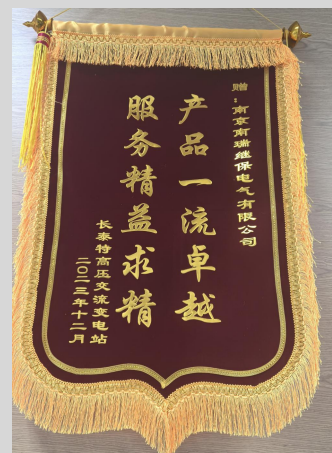 赠：南京南瑞继保电气有限公司
产品一流卓越
服务精益求精
长泰特高压交流变电站
二〇二三年十二月